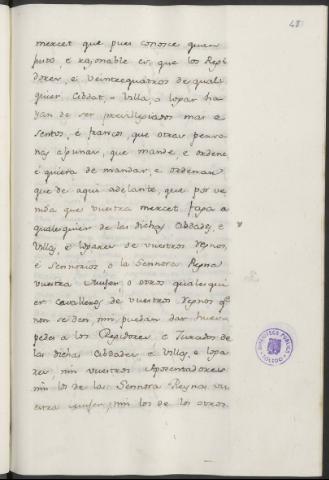 48
mercet que pues conosce quan
justo, è rajonable es, que los Regi
dores, è Veintequatros de quals
quier Cibdat, o Villa, o logar ha
yan de ser previllejiados mas e
sentos, è francos, que otras perso
nas algunas, que mande, è ordene
è quiera de mandar, è ordenar
que de aqui adelante, que por ve
nida que vuestra mercet faga a
qualesquier de las dichas Cibdades, è
Villas, è logares de vuestros Reynos,
è Sennorios, o la Sennora Reyna
vuestra Muger, o otros qualesqui
er cavalleros de vuestros Reynos qe
non se den, nin puedan dar hues
pedes a los Regidores, è Jurados de
las dichas Cibdades è Villas, è loga
res, nin vuestros Aposentadores
nin los de la Sennora Reyna vu
estra Muger, nin los de los otros
BIBLIOTECA PUBLICA
TOLEDO